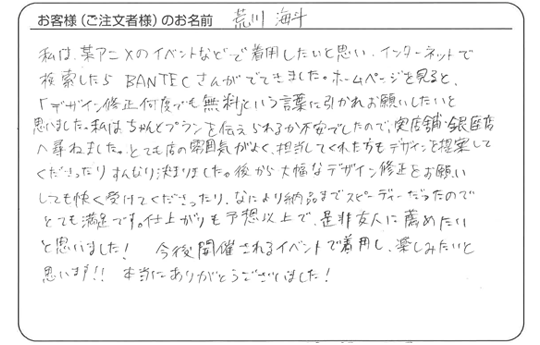 お客様（ご注文者様）のお名前　荒川 海斗
私は、某アニメのイベントなどで着用したいと思い、インターネットで
検索したら BANTECさんがでてきました。ホームページを見ると、
「デザイン修正何度でも無料」という言葉に引かれお願いしたいと
思いました。私はちゃんとプランを伝えられるか不安でしたので、実店舗・銀座店
へ尋ねました。とても店の雰囲気がよく、担当してくれた方もデザインを提案して
くださったりすんなり決まりました。後から大幅なデザイン修正をお願い
しても快く受けてくださったり、なにより納品までスピーディーだったので
とても満足です。仕上がりも予想以上で、是非友人に薦めたい
と思いました！　今後開催されるイベントで着用し、楽しみたいと
思います!!　本当にありがとうございました！